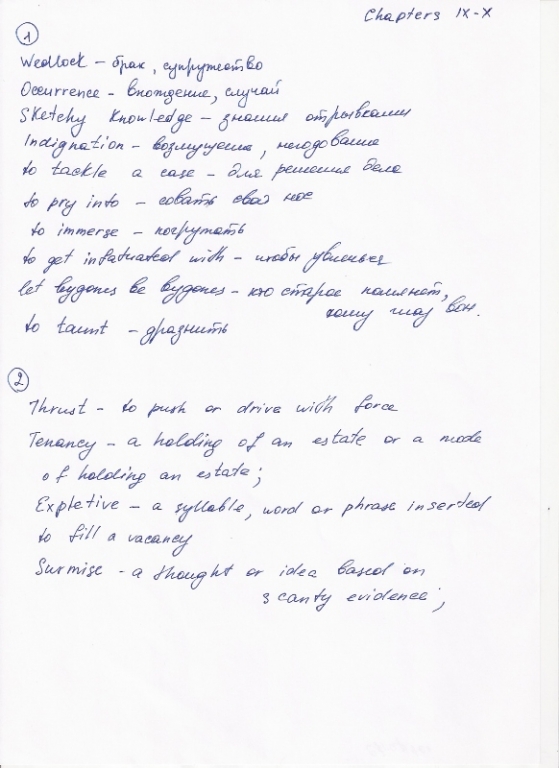 Chapters IX-X
1
Wedlock - брак, супружество
Occurrence - вхождение, случай
Sketchy knowledge - знания отрывками
Indignation - возмущение, негодование
to tackle a case - для решения дела
to pry into - совать свой нос
to immerse - погружать
to get infatuated with - чтобы увлечься
let bygones be bygones - кто старое помянет,
тому глаз вон.
to taunt - дразнить
2
Thrust - to push or drive with force
Tenancy - a holding of an estate or a mode
of holding an estate;
Expletive - a syllable, word or phrase inserted
to fill a vacancy
Surmise - a thought or idea based on
scanty evidence;